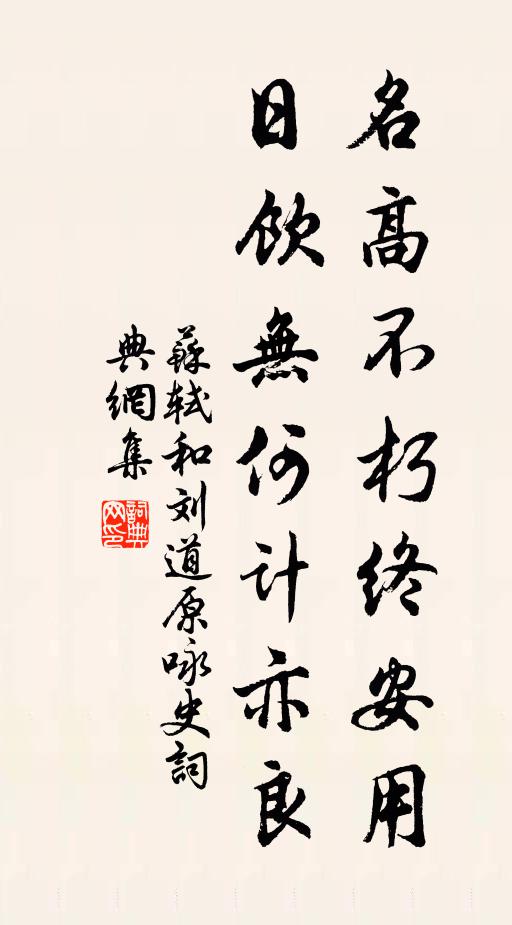 名高不朽終安用
日飲無何计亦良
蘇軾和刘道原咏史詞
典網集
詞典网印